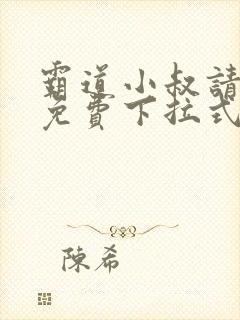 霸道小叔請
免費下拉式
陳希